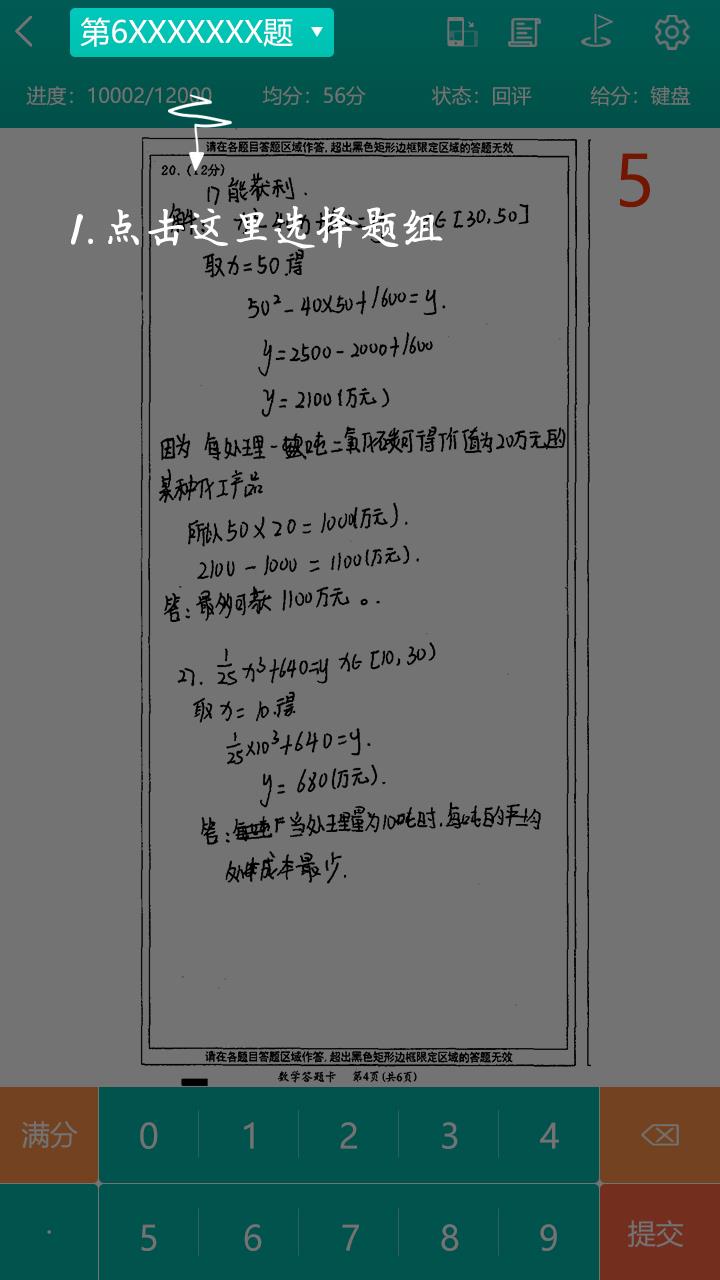 第6XXXXXXX题
进度：10002/12000 均分：56分 状态：回评 给分：键盘
请在各题目答题区域作答,超出黑色矩形边框限定区域的答题无效
5
20.(12分)
1) 能获利.
∈[30,50]
1.点击这里选择题组
取x=50得
50²-40×50+1600=y.
y=2500-2000+1600
y=2100(万元)
因为 每处理一吨二氧化碳可得价值为20万元的
某种化工产品
所以50×20=1000(万元).
2100-1000=1100(万元).
答:最多可获1100万元。.
2). 1/25 x³+640=y x∈[10,30)
取x=10.得
1/25×10³+640=y.
y=680(万元).
答: 当处理量为10吨时,每吨的平均
处理成本最少.
请在各题目答题区域作答,超出黑色矩形边框限定区域的答题无效
数学答题卡 第4页(共6页)
满分 0 1 2 3 4
· 5 6 7 8 9 提交